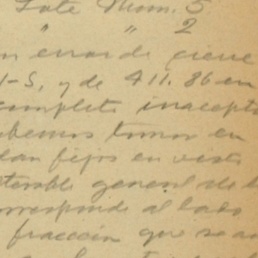 Late Mom. 5
" " 2
n error de cierre
1-S, y de 411.86 en
completa inacepta
abemos tomar en
lan fijos en vista
general de l
orresponde al lado
fracción que se a